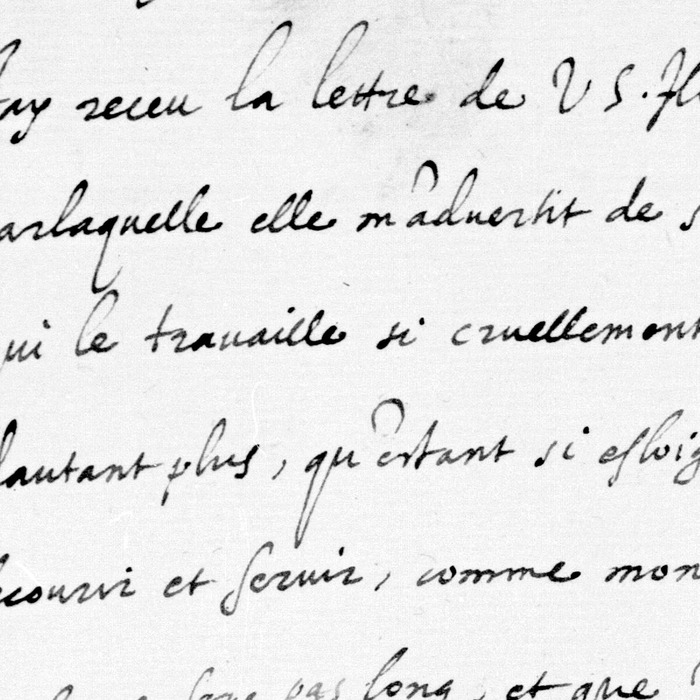 ay receu la lettre de V S. Ill
arlaquelle elle m'aduertit de s
qui le trauaille si cruellement
autant plus, qu'estant si esloig
ecourir et seruir, comme mon
pas long, et que